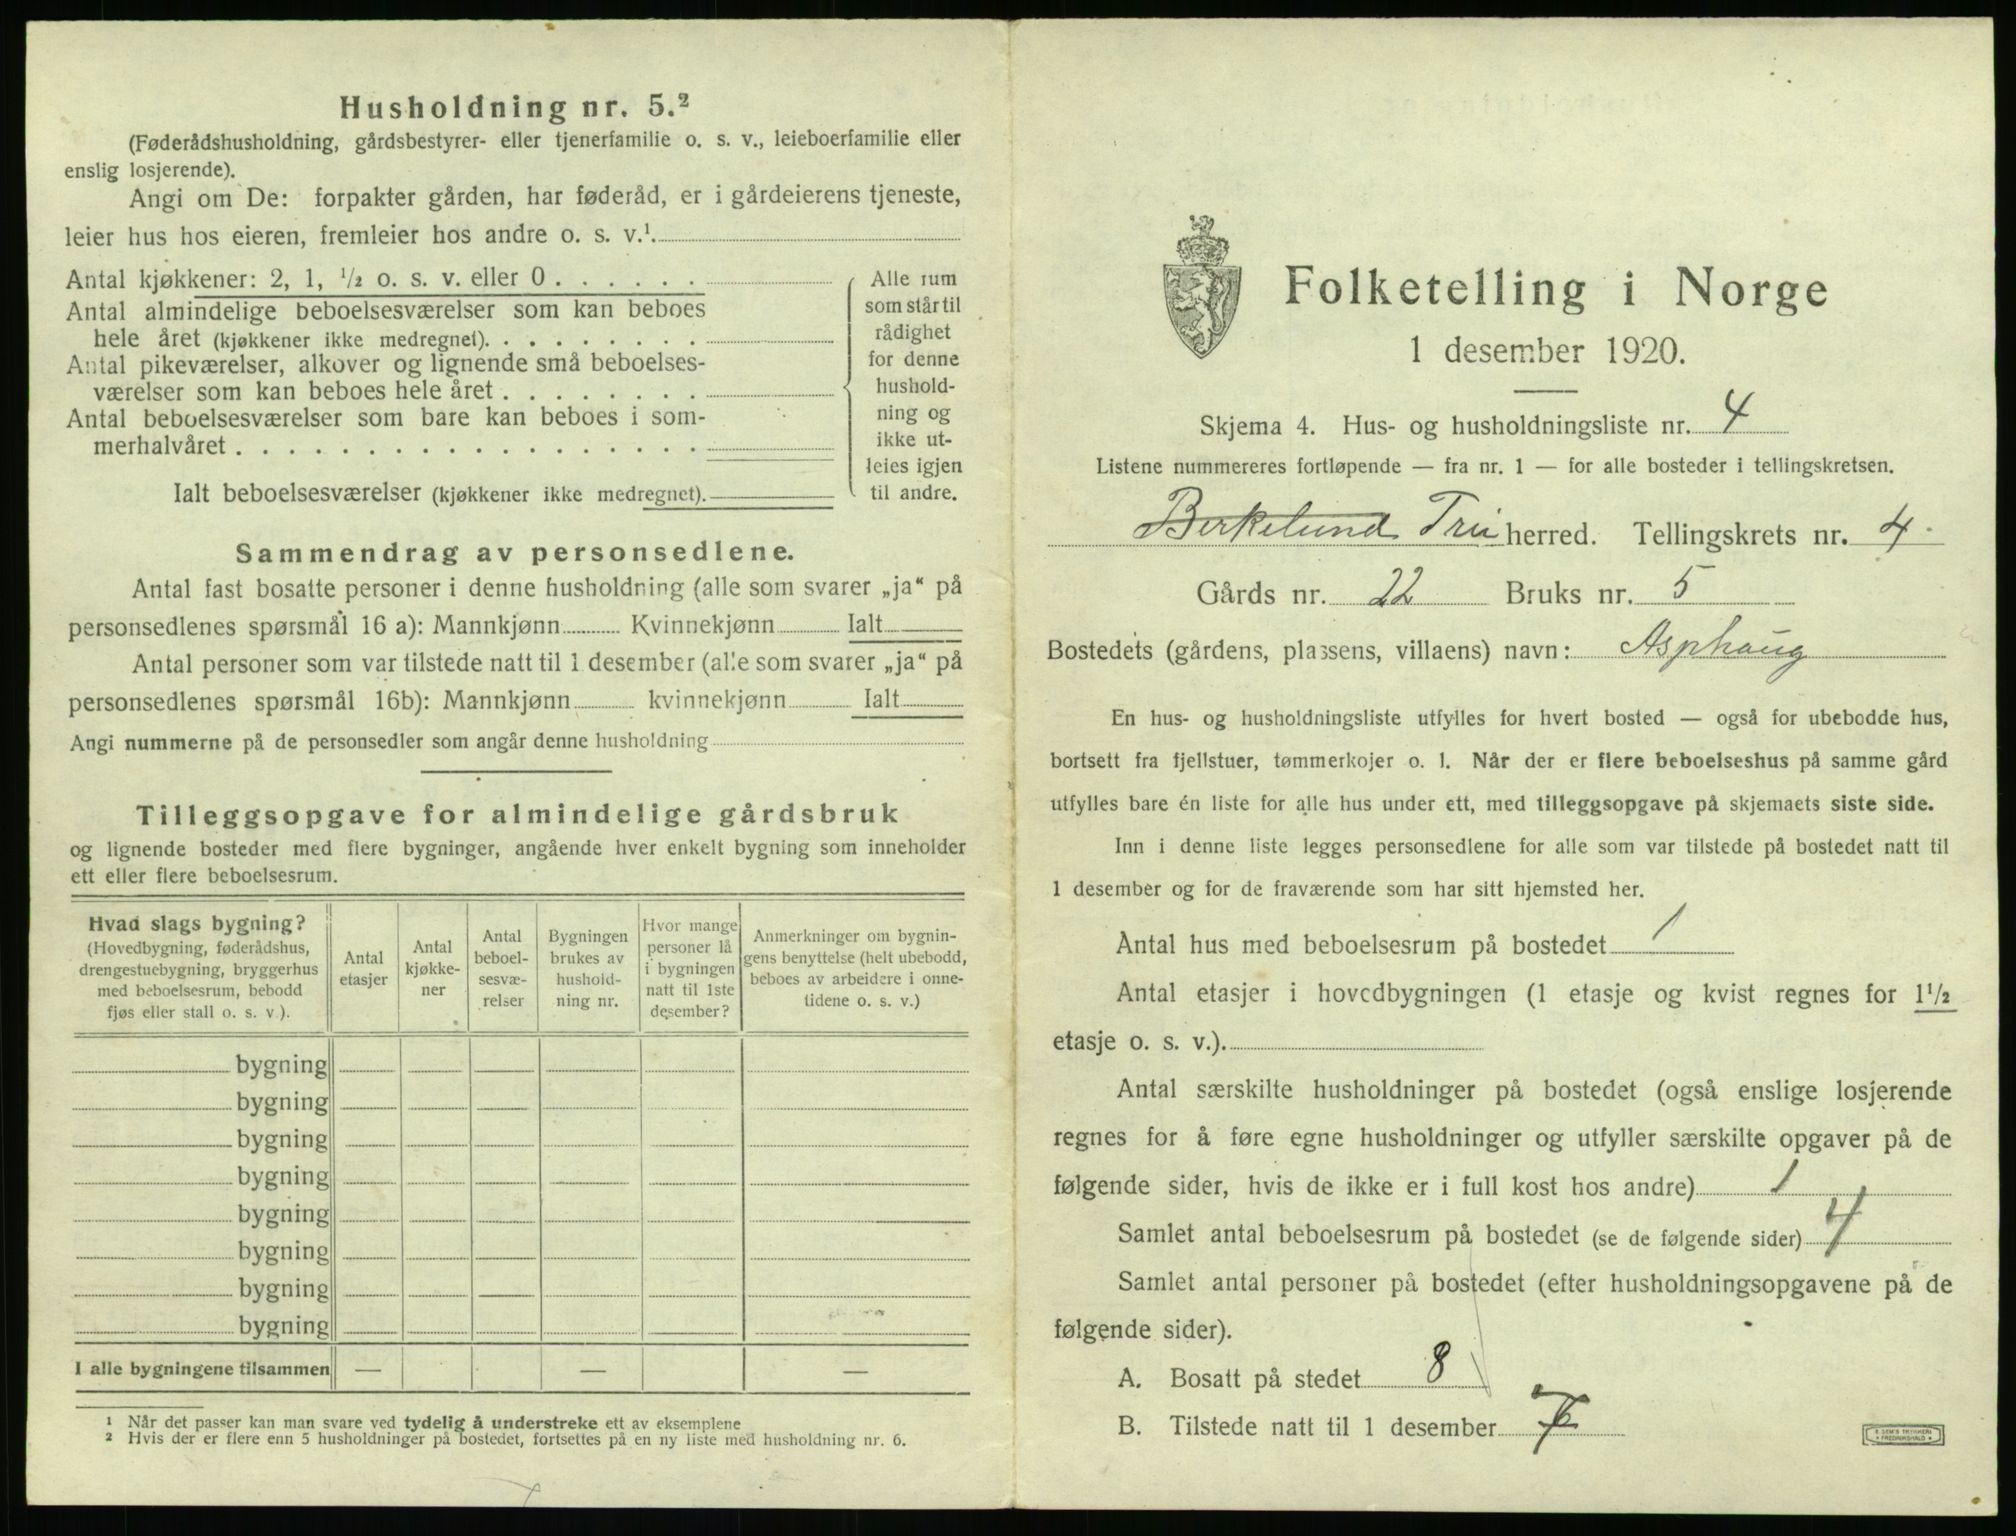 Husholdning nr. 5.²
(Føderådshusholdning, gårdsbestyrer- eller tjenerfamilie o. s. v., leieboerfamilie eller
enslig losjerende).
Angi om De: forpakter gården, har føderåd, er i gårdeierens tjeneste,
leier hus hos eieren, fremleier hos andre o. s. v.¹
Antal kjøkkener: 2, 1, ¹/₂ o. s. v. eller 0 . . . . . .
Antal almindelige beboelsesværelser som kan beboes
hele året (kjøkkener ikke medregnet). . . . . . . . .
Antal pikeværelser, alkover og lignende små beboelses-
værelser som kan beboes hele året . . . . . . . .
Antal beboelsesværelser som bare kan beboes i som-
merhalvåret . . . . . . . . . . . . . . . . . .
Ialt beboelsesværelser (kjøkkener ikke medregnet).
Alle rum
som står til
rådighet
for denne
hushold-
ning og
ikke ut-
leies igjen
til andre.
Sammendrag av personsedlene.
Antal fast bosatte personer i denne husholdning (alle som svarer „ja“ på
personsedlenes spørsmål 16 a): Mannkjønn Kvinnekjønn Ialt
Antal personer som var tilstede natt til 1 desember (alle som svarer „ja“ på
personsedlenes spørsmål 16b): Mannkjønn kvinnekjønn Ialt
Angi nummerne på de personsedler som angår denne husholdning
Tilleggsopgave for almindelige gårdsbruk
og lignende bosteder med flere bygninger, angående hver enkelt bygning som inneholder
ett eller flere beboelsesrum.
Hvad slags bygning?
(Hovedbygning, føderådshus,
drengestuebygning, bryggerhus
med beboelsesrum, bebodd
fjøs eller stall o. s. v.).
Antal
etasjer
Antal
kjøkke-
ner
Antal
beboel-
sesvæ-
relser
Bygningen
brukes av
hushold-
ning nr.
Hvor mange
personer lå
i bygningen
natt til 1ste
desember?
Anmerkninger om bygnin-
gens benyttelse (helt ubebodd,
beboes av arbeidere i onne-
tidene o. s. v.)
bygning
bygning
bygning
bygning
bygning
bygning
bygning
bygning
I alle bygningene tilsammen — — —
¹ Når det passer kan man svare ved tydelig å understreke ett av eksemplene
² Hvis der er flere enn 5 husholdninger på bostedet, fortsettes på en ny liste med husholdning nr. 6.
Folketelling i Norge
1 desember 1920.
Skjema 4. Hus- og husholdningsliste nr. 4
Listene nummereres fortløpende — fra nr. 1 — for alle bosteder i tellingskretsen.
Birkelund herred. Tellingskrets nr. 4
Gårds nr. 22 Bruks nr. 5
Bostedets (gårdens, plassens, villaens) navn: Asphaug
En hus- og husholdningsliste utfylles for hvert bosted — også for ubebodde hus,
bortsett fra fjellstuer, tømmerkojer o. l. Når der er flere beboelseshus på samme gård
utfylles bare én liste for alle hus under ett, med tilleggsopgave på skjemaets siste side.
Inn i denne liste legges personsedlene for alle som var tilstede på bostedet natt til
1 desember og for de fraværende som har sitt hjemsted her.
Antal hus med beboelsesrum på bostedet 1
Antal etasjer i hovedbygningen (1 etasje og kvist regnes for 1¹/₂
etasje o. s. v.).
Antal særskilte husholdninger på bostedet (også enslige losjerende
regnes for å føre egne husholdninger og utfyller særskilte opgaver på de
følgende sider, hvis de ikke er i full kost hos andre) 1
Samlet antal beboelsesrum på bostedet (se de følgende sider) 4
Samlet antal personer på bostedet (efter husholdningsopgavene på de
følgende sider).
A. Bosatt på stedet 8
B. Tilstede natt til 1 desember 7